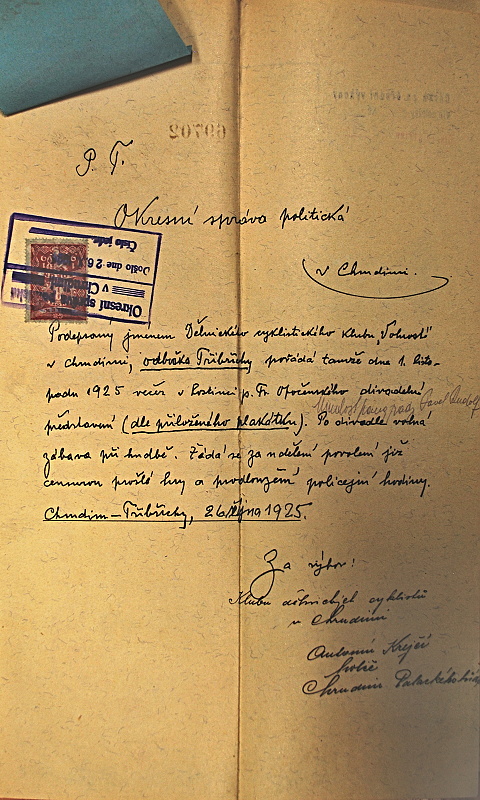 60702
P. T.
Okresní správa politická
v Chrudimi.
Okresní správa
v Ch
Došlo dne 26
Číslo jedn.
Podepsaný jmenem Dělnického cyklistického klubu Volnost
v Chrudimi, odbočka Třibřichy pořádá tamže dne 1. listo-
padu 1925 večer v hostinci p. Fr. Opočenského divadelní
představení (dle přiloženého plakátku). Po divadle volná
Pavel Rudolf
zábava při hudbě. Žádá se za udělení povolení již
censurou prošlé hry a prodloužení policejní hodiny.
Chrudim–Třibřichy, 26. října 1925.
Za výbor:
Klubu dělnických cyklistů
v Chrudimi
Antonín Krejčí
holič
Chrudim